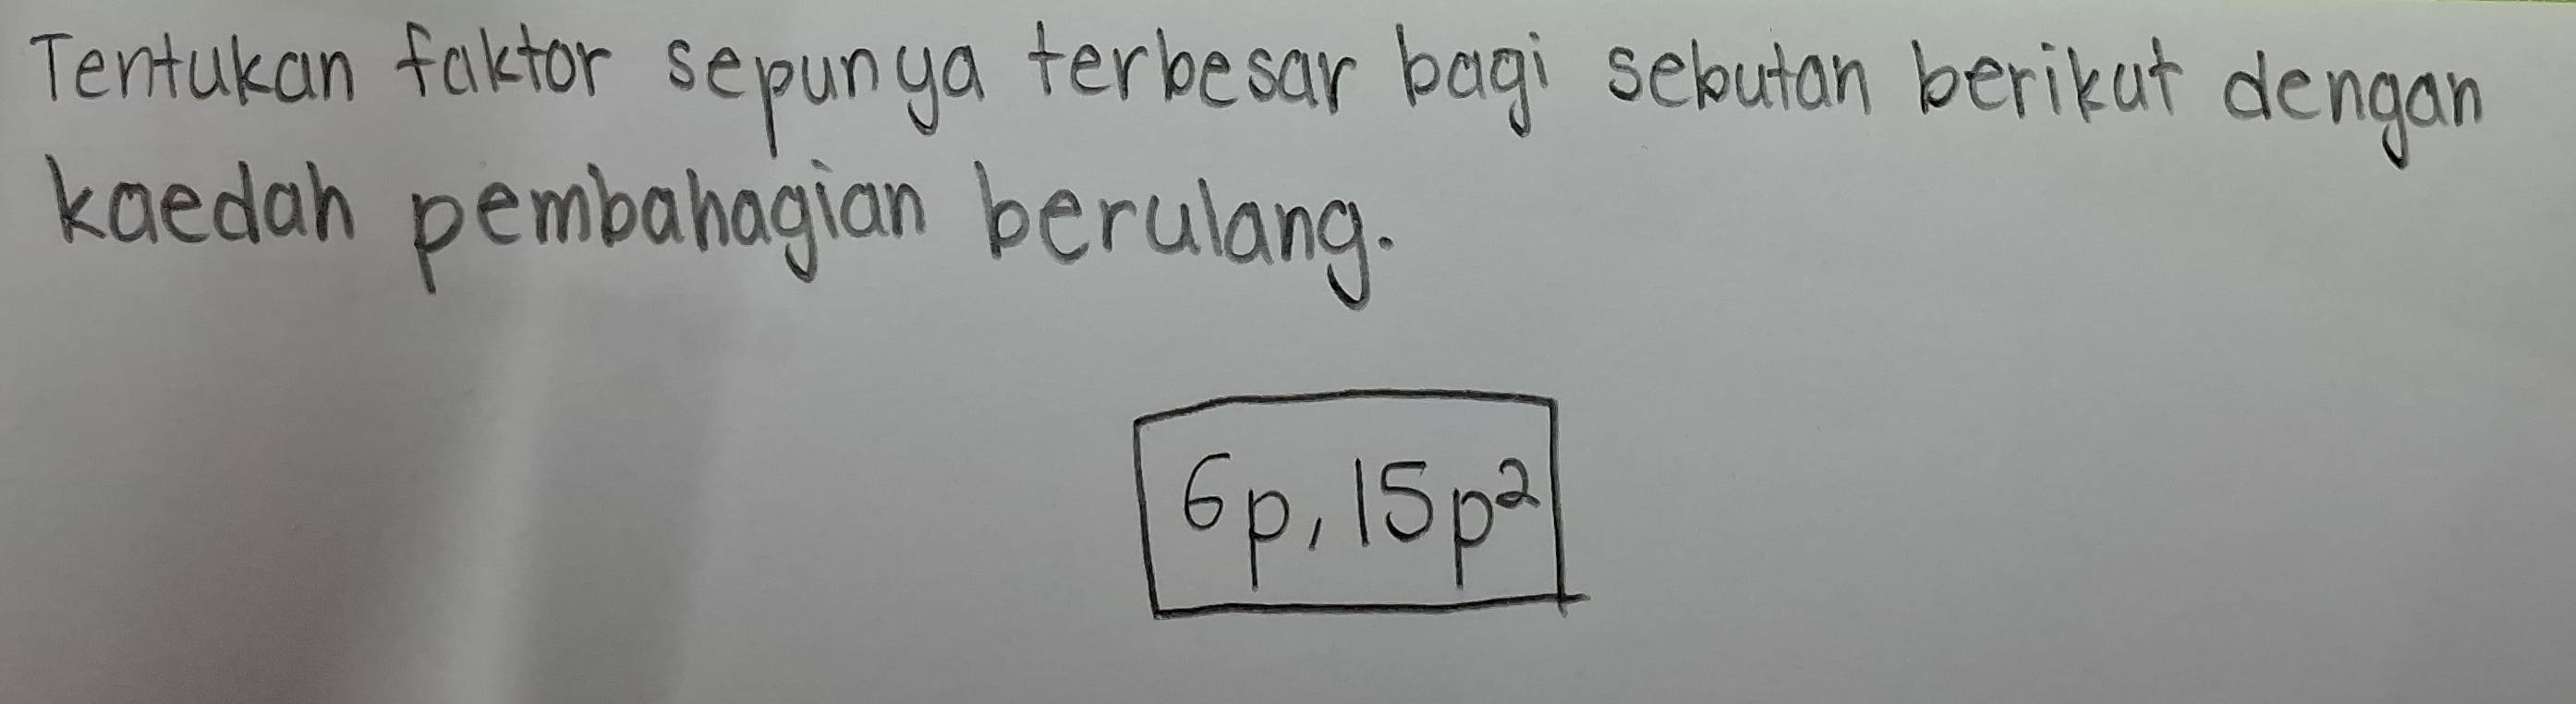 Tentukan faktor sepunya terbesar bagi sebutan berikut dengan
kaedah pembahagian berulang.
6p, 15p²